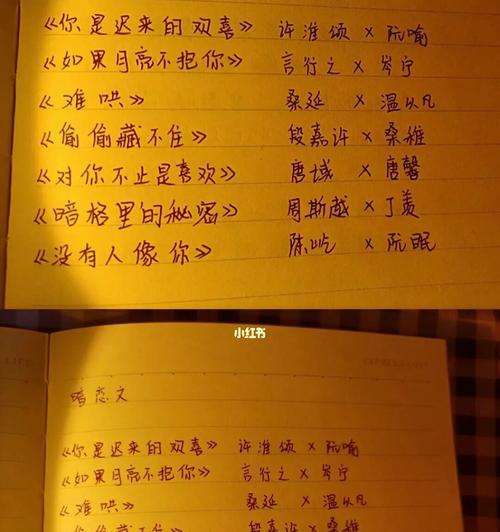 《你是迟来的欢喜》 许淮颂 × 阮喻
《如果月亮不抱你》 言行之 × 岑宁
《难哄》 桑延 × 温以凡
《偷偷藏不住》 段嘉许 × 桑稚
《对你不止是喜欢》 唐域 × 唐馨
《暗格里的秘密》 周斯越 × 丁羡
《没有人像你》 陈屹 × 阮眠
小红书
暗恋文
《你是迟来的欢喜》 许淮颂 × 阮喻
《如果月亮不抱你》 言行之 × 岑宁
《难哄》 桑延 × 温以凡
《偷偷藏不住》 段嘉许 × 桑稚